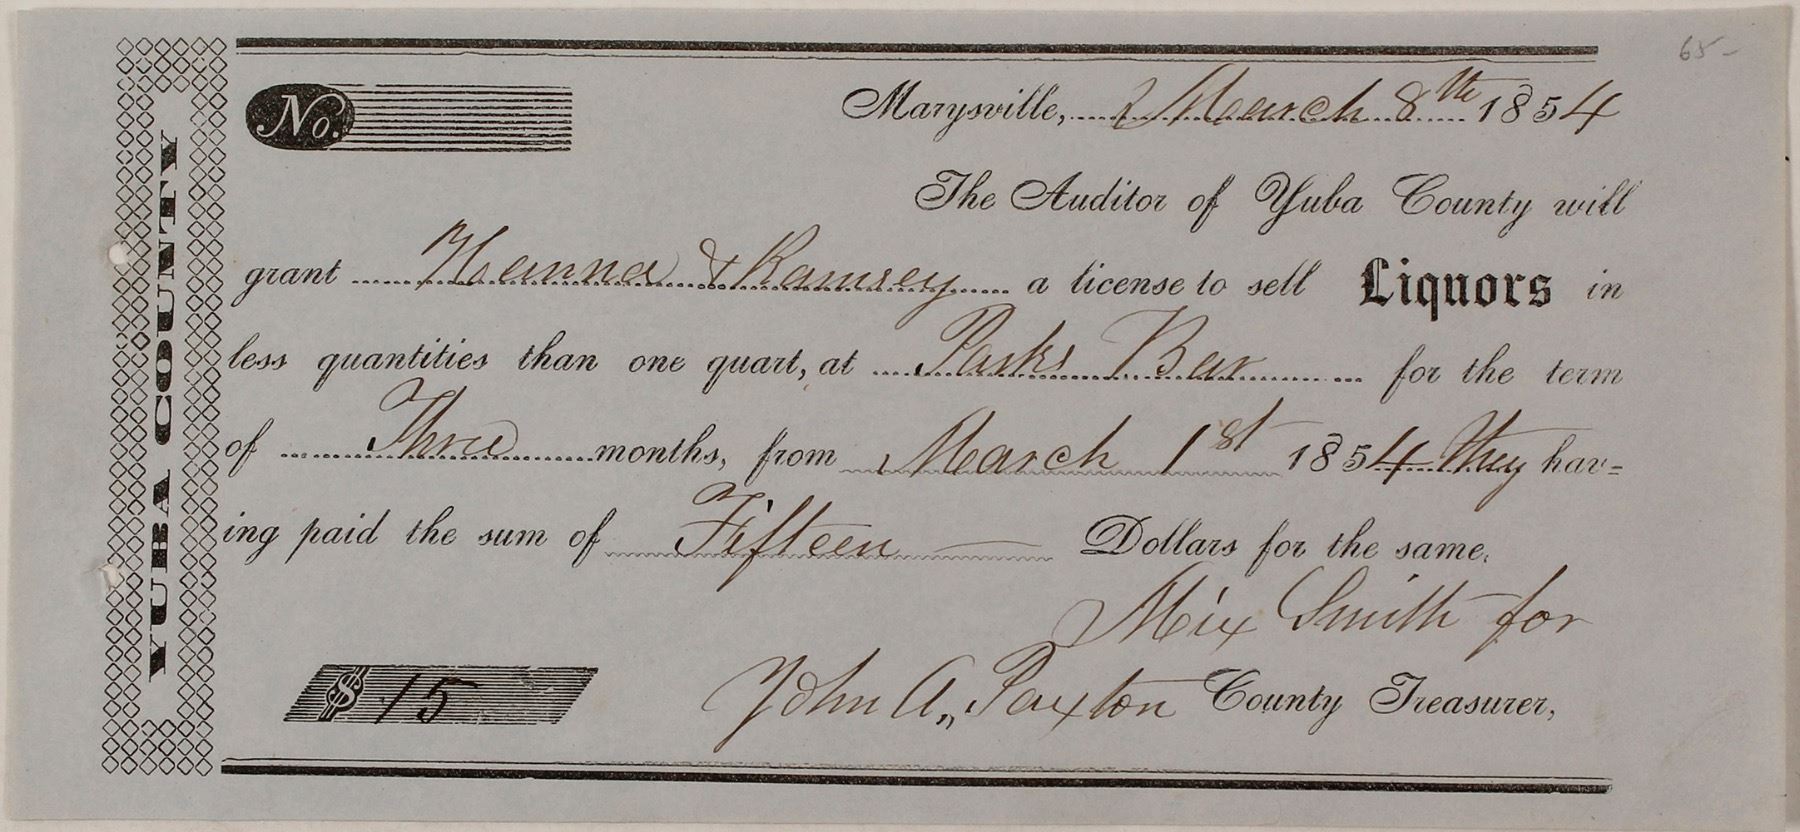 65-
YUBA COUNTY
No.
Marysville, March 8th 1854
The Auditor of Yuba County will
grant Hanna & Ramsey a license to sell Liquors in
less quantities than one quart, at Parks Bar for the term
of Three months, from March 1st 1854 they hav=
ing paid the sum of Fifteen — Dollars for the same.
Mix Smith for
$ 15
John A,, Paxton County Treasurer,